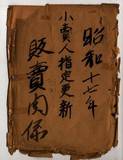 昭和十七年
小賣人指定更新
販賣関係